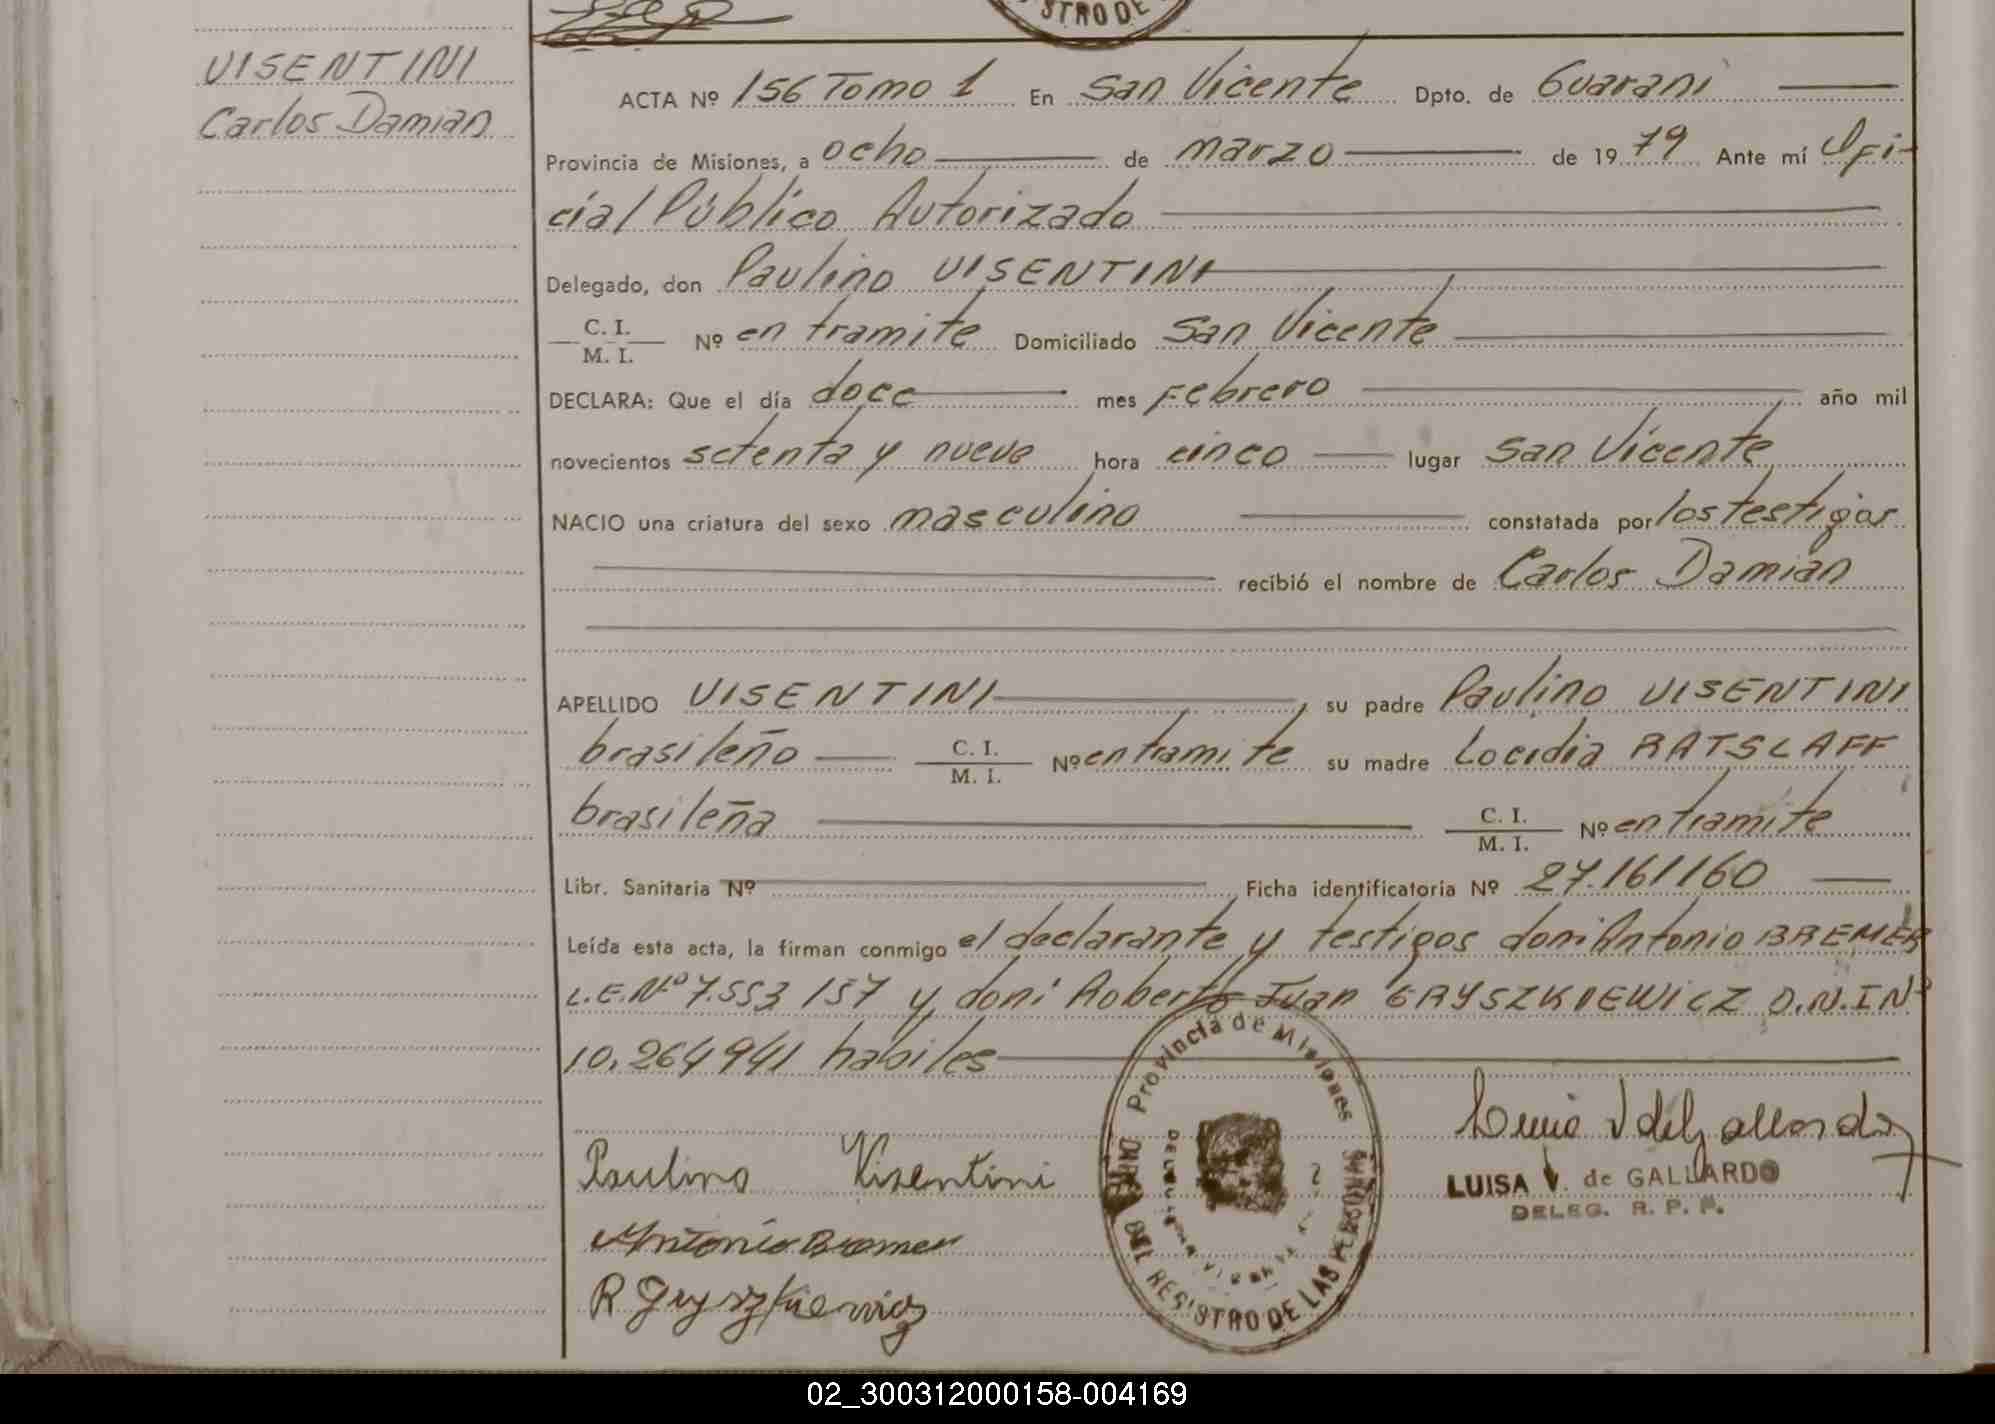 STRO DE
VISENTINI
Carlos Damian
ACTA Nº 156 Tomo 1 En San Vicente Dpto. de Guarani
Provincia de Misiones, a ocho de marzo de 1979 Ante mí Ofi-
cial Público Autorizado
Delegado, don Paulino VISENTINI
C. I.
M. I. Nº en tramite Domiciliado San Vicente
DECLARA: Que el día doce mes Febrero año mil
novecientos setenta y nueve hora cinco lugar San Vicente
NACIO una criatura del sexo masculino constatada por los testigos
recibió el nombre de Carlos Damian
APELLIDO VISENTINI su padre Paulino VISENTINI
brasileño C. I. M. I. Nº en tramite su madre Locidia RATSLAFF
brasileña C. I. M. I. Nº en tramite
Libr. Sanitaria Nº Ficha identificatoria Nº 27.161160
Leída esta acta, la firman conmigo el declarante y testigos don: Antonio BREMER
L.E.Nº 7.553 157 y don: Roberto Juan GRYSZKIEWICZ D.N.I Nº
10.264941 habiles
Provincia de Misiones
DEL REGISTRO DE LAS PERSONAS
Paulino Visentini
LUISA V. de GALLARDO
DELEG. R. P. P.
Antonio Bremer
R Gryszkiewicz
02_300312000158-004169